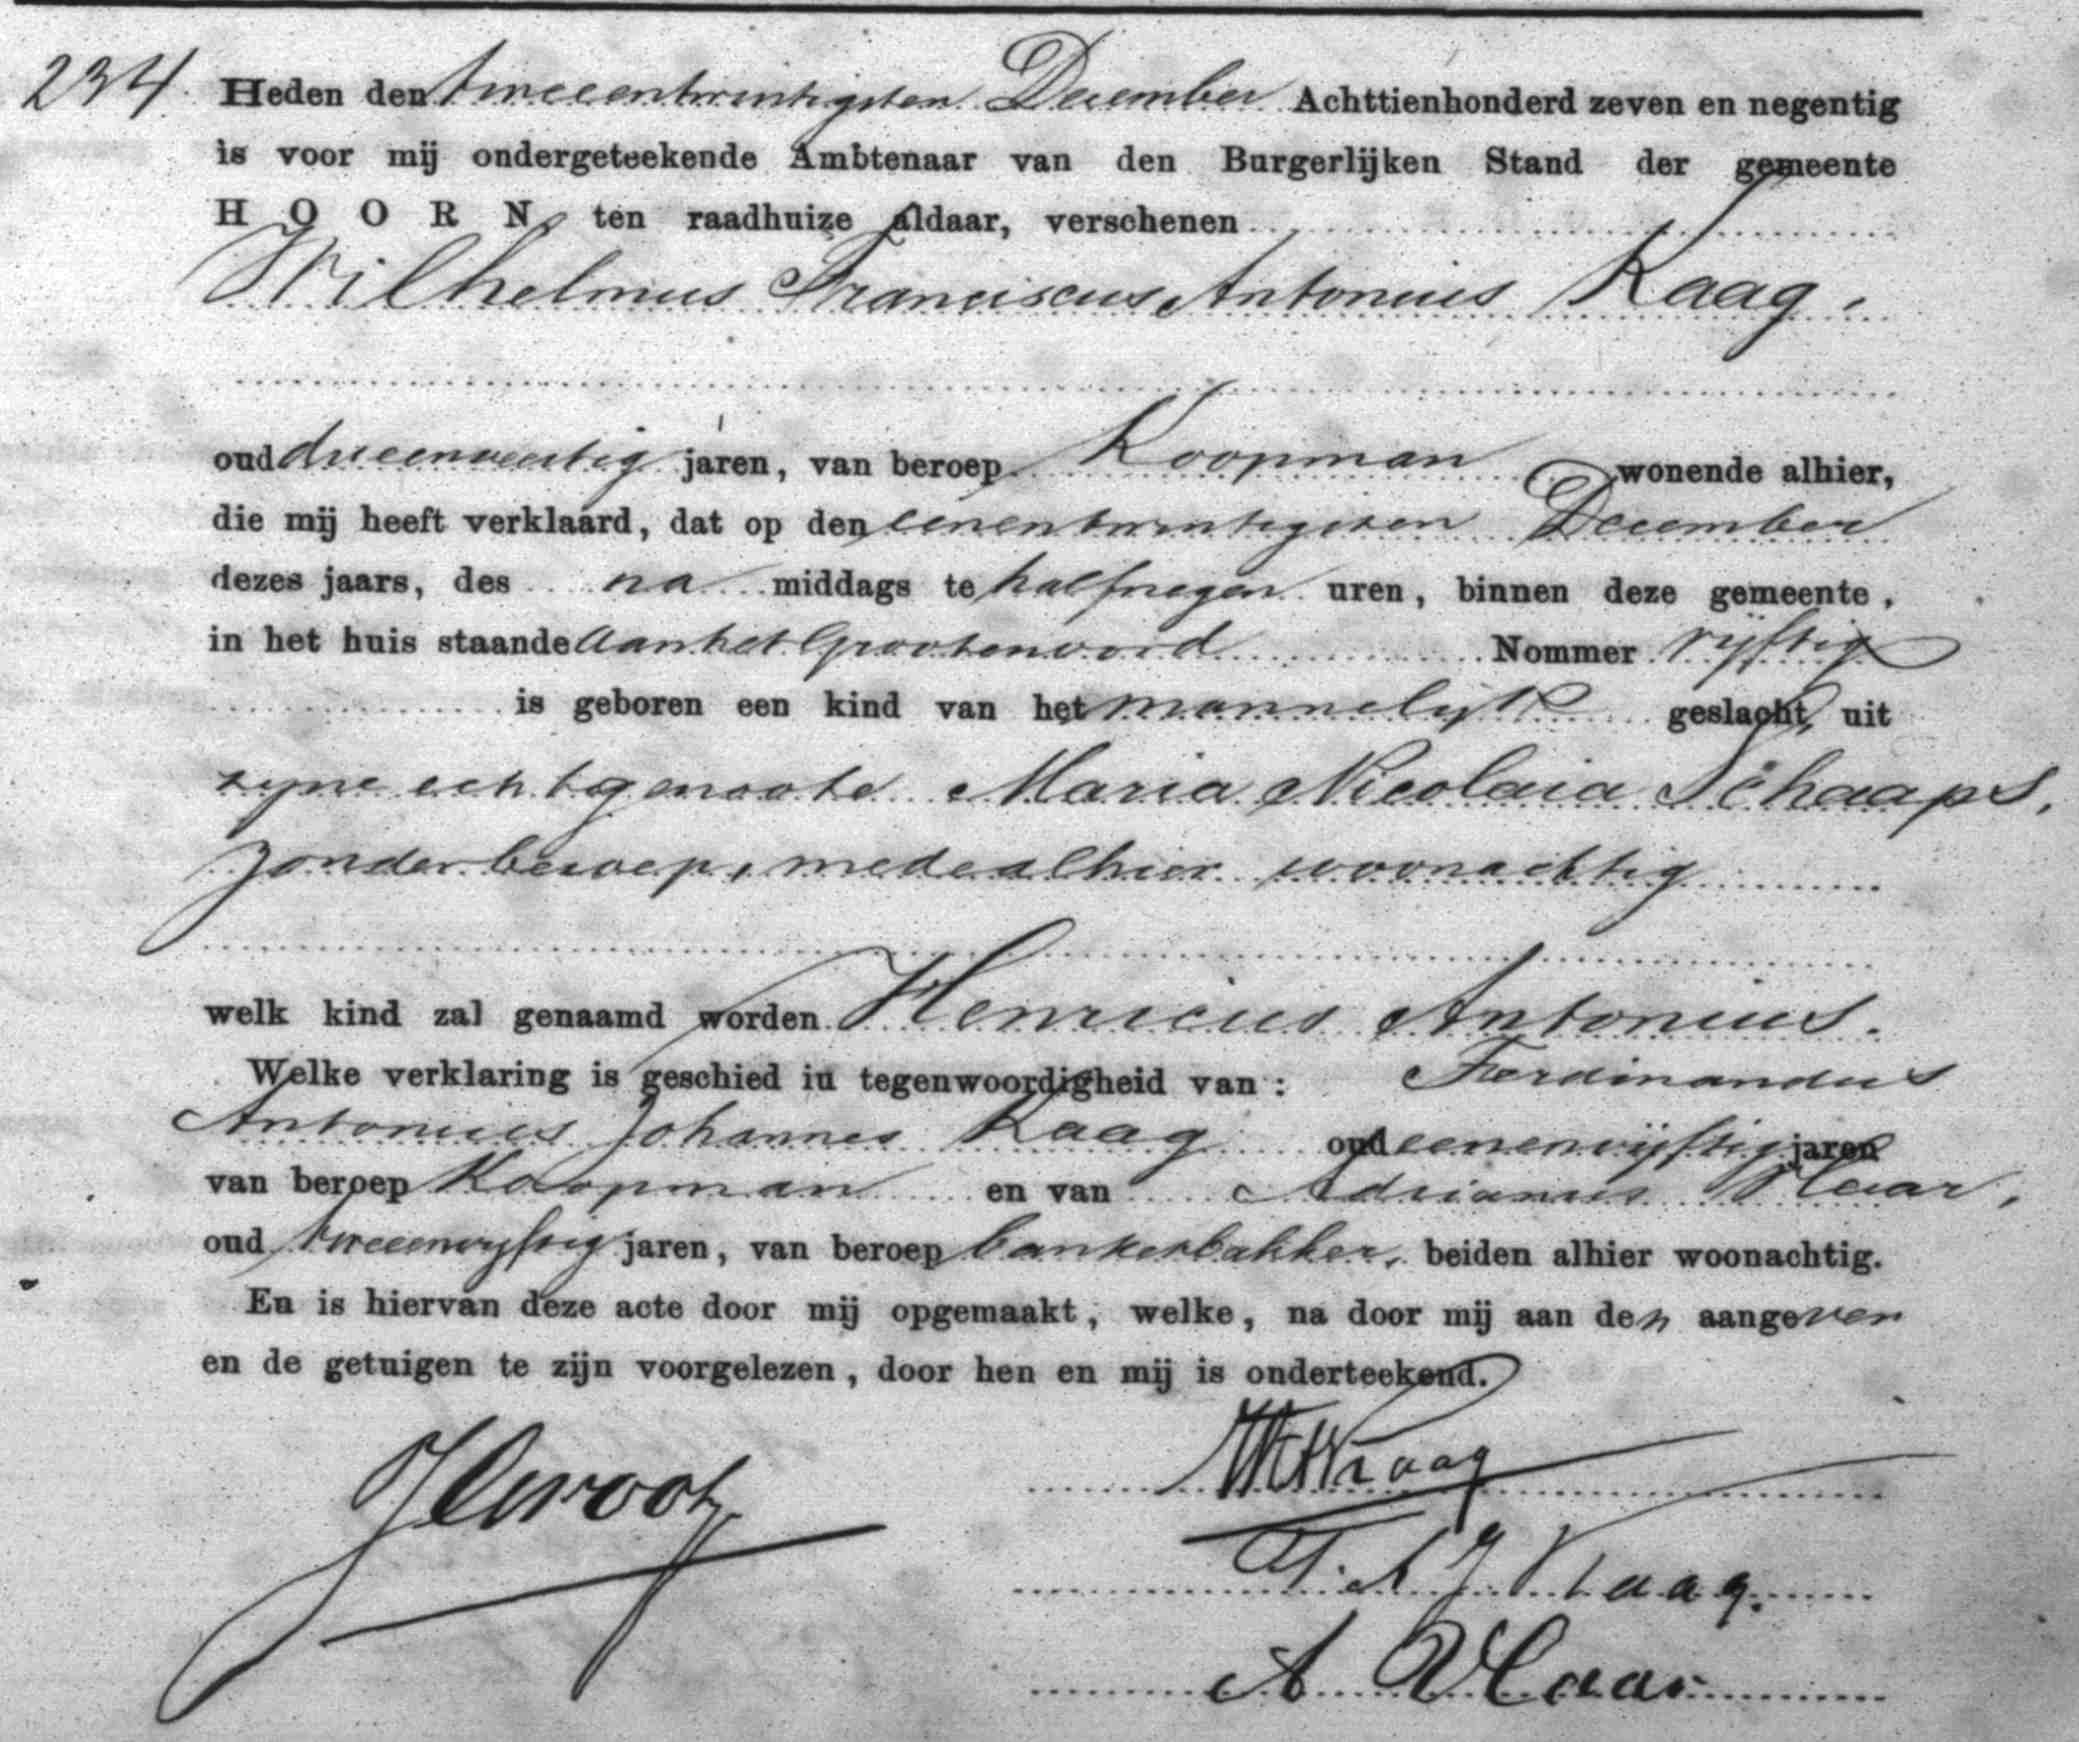 234. Heden den tweeentwintigsten December Achttienhonderd zeven en negentig
is voor mij ondergeteekende Ambtenaar van den Burgerlijken Stand der gemeente
HOORN, ten raadhuize aldaar, verschenen
Wilhelmus Franciscus Antonius Kaag,
oud drieenveertig jaren, van beroep Koopman wonende alhier,
die mij heeft verklaard, dat op den eenentwintigsten December
dezes jaars, des na middags te half negen uren, binnen deze gemeente,
in het huis staande aan het Grootenoord Nommer vijftig
is geboren een kind van het mannelijk geslacht, uit
zijne echtgenoote Maria Nicolaia Schaaps,
zonder beroep, mede alhier woonachtig
welk kind zal genaamd worden Henricus Antonius.
Welke verklaring is geschied in tegenwoordigheid van: Ferdinandus
Antonius Johannes Kaag oud eenenvijftig jaren
van beroep Koopman en van Adrianus Vlaar,
oud tweeenvijftig jaren, van beroep banketbakker, beiden alhier woonachtig.
En is hiervan deze acte door mij opgemaakt, welke, na door mij aan den aangever
en de getuigen te zijn voorgelezen, door hen en mij is onderteekend.
Kaag
F. A. J. Kaag.
A Vlaar